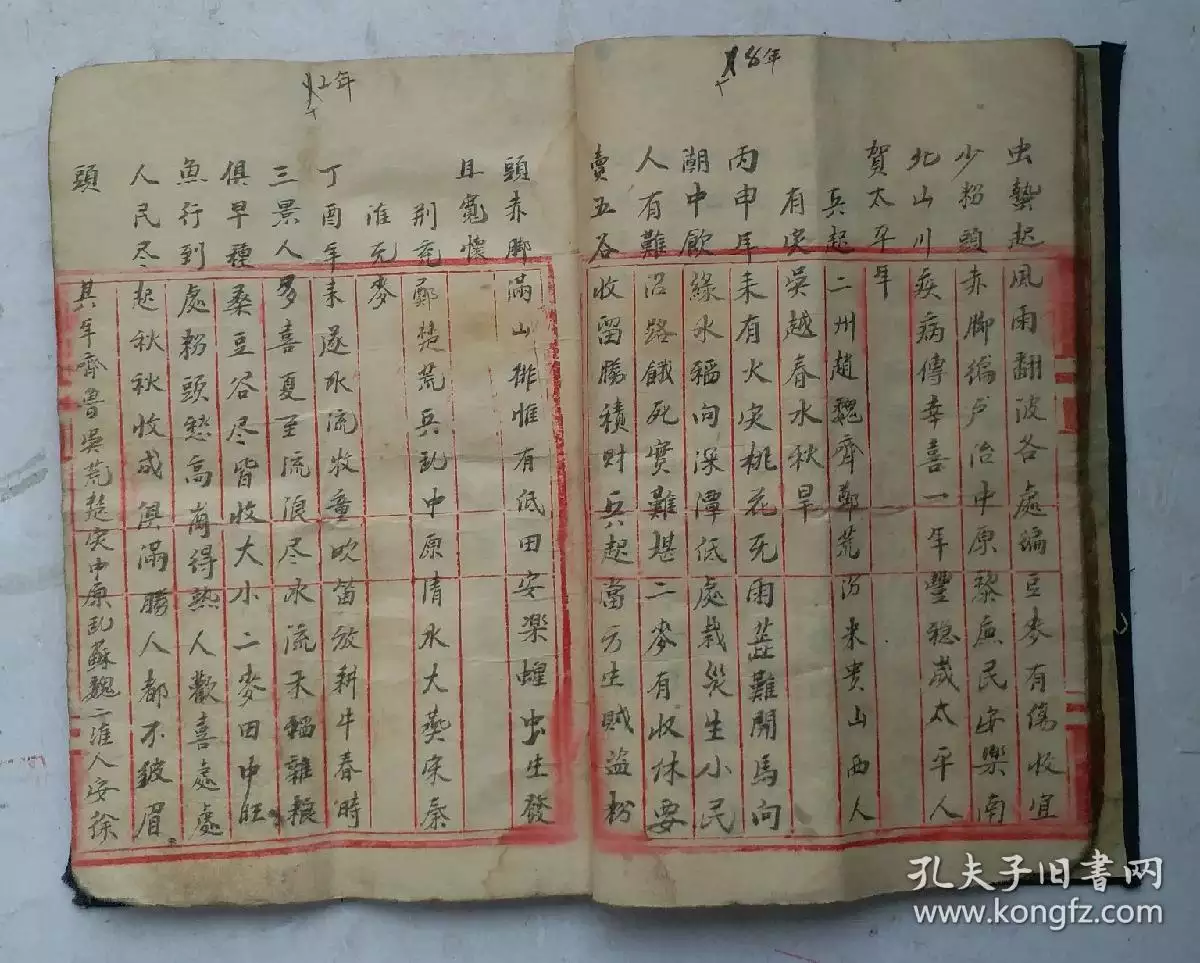 18年
虫藝起風雨翻波各處編豆麥有傷收宜
少粉頭赤脚編户治中原黎庶民安樂南
北山川疾病傳幸喜一年豐稔歲太平人
賀太平年
兵起二州趙魏齊鄭荒汾米贵山西人
有灾吳越春水秋旱
丙申年耒有火灾桃花死雨難開馬向
潮中飲緑水稻向深潭低處栽災生小民
人有難沿路餓死實難堪二麥有收休要
賣五谷收留勝積財兵起當方生賊盗粉
12年
頭赤脚滿山排惟有低田安樂蝗虫生發
且寬懷
荆兖鄭楚荒兵乱中原清水大燕宋秦
淮兖麥
丁酉年耒遂水流牧童吹笛放耕牛春時
三景人多喜夏至流浪尽水流禾稻雜粮
俱早種桑豆谷尽皆收大小二麥田中旺
魚行到處粉頭愁高崗得熟人歡喜處處
人民尽起秋秋收成俱滿勝人都不皱眉
頭 其年齊魯吳荒楚灾中原乱蘇魏二淮人安徐
孔夫子旧書网
www.kongfz.com